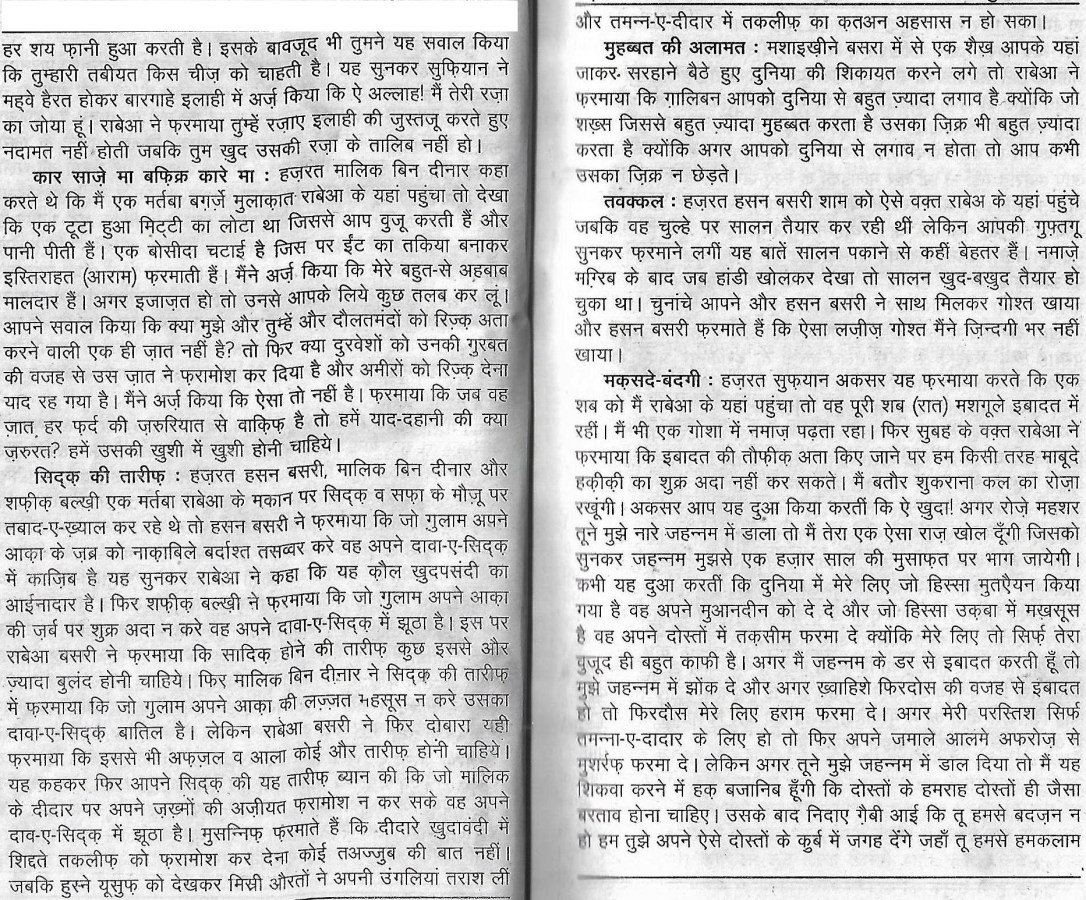 हर शय फ़ानी हुआ करती है। इसके बावजूद भी तुमने यह सवाल किया
कि तुम्हारी तबीयत किस चीज़ को चाहती है। यह सुनकर सुफ़ियान ने
मह्वे हैरत होकर बारगाहे इलाही में अर्ज़ किया कि ऐ अल्लाह! मैं तेरी रज़ा
का जोया हूं। राबेआ ने फ़रमाया तुम्हें रज़ाए इलाही की जुस्तजू करते हुए
नदामत नहीं होती जबकि तुम ख़ुद उसकी रज़ा के तालिब नहीं हो।
कार साज़े मा बफ़िक्र कारे मा : हज़रत मालिक बिन दीनार कहा
करते थे कि मैं एक मर्तबा बग़र्ज़े मुलाक़ात राबेआ के यहां पहुंचा तो देखा
कि एक टूटा हुआ मिट्टी का लोटा था जिससे आप वुजू करती हैं और
पानी पीती हैं। एक बोसीदा चटाई है जिस पर ईंट का तकिया बनाकर
इस्तिराहत (आराम) फ़रमाती हैं। मैंने अर्ज़ किया कि मेरे बहुत-से अहबाब
मालदार हैं। अगर इजाज़त हो तो उनसे आपके लिये कुछ तलब कर लूं।
आपने सवाल किया कि क्या मुझे और तुम्हें और दौलतमंदों को रिज़्क़ अता
करने वाली एक ही ज़ात नहीं है? तो फिर क्या दुरवेशों को उनकी गुरबत
की वजह से उस ज़ात ने फ़रामोश कर दिया है और अमीरों को रिज़्क़ देना
याद रह गया है। मैंने अर्ज़ किया कि ऐसा तो नहीं है। फ़रमाया कि जब वह
ज़ात हर फ़र्द की ज़रुरियात से वाक़िफ़ है तो हमें याद-दहानी की क्या
ज़रुरत? हमें उसकी ख़ुशी में ख़ुशी होनी चाहिये।
सिद्क़ की तारीफ़ : हज़रत हसन बसरी, मालिक बिन दीनार और
शफ़ीक़ बल्ख़ी एक मर्तबा राबेआ के मकान पर सिद्क़ व सफ़ा के मौज़ू पर
तबाद-ए-ख़्याल कर रहे थे तो हसन बसरी ने फ़रमाया कि जो ग़ुलाम अपने
आक़ा के ज़ब्र को नाक़ाबिले बर्दाश्त तसव्वर करे वह अपने दावा-ए-सिद्क़
में काज़िब है यह सुनकर राबेआ ने कहा कि यह क़ौल ख़ुदपसंदी का
आईनादार है। फिर शफ़ीक़ बल्ख़ी ने फ़रमाया कि जो गुलाम अपने आक़ा
की ज़र्ब पर शुक्र अदा न करे वह अपने दावा-ए-सिद्क़ में झूठा है। इस पर
राबेआ बसरी ने फ़रमाया कि सादिक़ होने की तारीफ़ कुछ इससे और
ज़्यादा बुलंद होनी चाहिये। फिर मालिक बिन दीनार ने सिद्क़ की तारीफ़
में फ़रमाया कि जो गुलाम अपने आक़ा की लज़्ज़त महसूस न करे उसका
दावा-ए-सिद्क़ बातिल है। लेकिन राबेआ बसरी ने फिर दोबारा यही
फ़रमाया कि इससे भी अफ़ज़ल व आला कोई और तारीफ़ होनी चाहिये।
यह कहकर फिर आपने सिद्क़ की यह तारीफ़ ब्यान की कि जो मालिक
के दीदार पर अपने ज़ख़्मों की अज़ीयत फ़रामोश न कर सके वह अपने
दाव-ए-सिद्क़ में झूठा है। मुसन्निफ़ फ़रमाते हैं कि दीदारे ख़ुदावंदी में
शिद्दते तकलीफ़ को फ़रामोश कर देना कोई तअज्जुब की बात नहीं।
जबकि हुस्ने यूसुफ़ को देखकर मिस्री औरतों ने अपनी उंगलियां तराश लीं
और तमन्न-ए-दीदार में तकलीफ़ का क़तअन अहसास न हो सका।
मुहब्बत की अलामत : मशाइख़ीने बसरा में से एक शैख़ आपके यहां
जाकर सरहाने बैठे हुए दुनिया की शिकायत करने लगे तो राबेआ ने
फ़रमाया कि ग़ालिबन आपको दुनिया से बहुत ज़्यादा लगाव है क्योंकि जो
शख़्स जिससे बहुत ज़्यादा मुहब्बत करता है उसका ज़िक्र भी बहुत ज़्यादा
करता है क्योंकि अगर आपको दुनिया से लगाव न होता तो आप कभी
उसका ज़िक्र न छेड़ते।
तवक्कल : हज़रत हसन बसरी शाम को ऐसे वक़्त राबेअ के यहां पहुंचे
जबकि वह चुल्हे पर सालन तैयार कर रही थीं लेकिन आपकी गुफ़्तगू
सुनकर फ़रमाने लगीं यह बातें सालन पकाने से कहीं बेहतर हैं। नमाज़े
मग़्रिब के बाद जब हांडी खोलकर देखा तो सालन ख़ुद-बख़ुद तैयार हो
चुका था। चुनांचे आपने और हसन बसरी ने साथ मिलकर गोश्त खाया
और हसन बसरी फ़रमाते हैं कि ऐसा लज़ीज़ गोश्त मैंने ज़िन्दगी भर नहीं
खाया।
मक़सदे-बंदगी : हज़रत सुफ़यान अकसर यह फ़रमाया करते कि एक
शब को मैं राबेआ के यहां पहुंचा तो वह पूरी शब (रात) मशगूले इबादत में
रहीं। मैं भी एक गोशा में नमाज़ पढ़ता रहा। फिर सुबह के वक़्त राबेआ ने
फ़रमाया कि इबादत की तौफ़ीक़ अता किए जाने पर हम किसी तरह माबूदे
हक़ीक़ी का शुक्र अदा नहीं कर सकते। मैं बतौर शुकराना कल का रोज़ा
रखूंगी। अकसर आप यह दुआ किया करतीं कि ऐ ख़ुदा! अगर रोज़े महशर
तूने मुझे नारे जहन्नम में डाला तो मैं तेरा एक ऐसा राज़ खोल दूँगी जिसको
सुनकर जहन्नम मुझसे एक हज़ार साल की मुसाफ़त पर भाग जायेगी।
कभी यह दुआ करतीं कि दुनिया में मेरे लिए जो हिस्सा मुतऐयन किया
गया है वह अपने मुआनदीन को दे दे और जो हिस्सा उक़बा में मख़सूस
है वह अपने दोस्तों में तक़सीम फ़रमा दे क्योंकि मेरे लिए तो सिर्फ़ तेरा
वुजूद ही बहुत काफी है। अगर मैं जहन्नम के डर से इबादत करती हूँ तो
मुझे जहन्नम में झोंक दे और अगर ख़्वाहिशे फिरदोस की वजह से इबादत
हो तो फिरदौस मेरे लिए हराम फरमा दे। अगर मेरी परस्तिश सिर्फ
तमन्ना-ए-दादार के लिए हो तो फिर अपने जमाले आलमे अफरोज़ से
मुशर्रफ़ फरमा दे। लेकिन अगर तूने मुझे जहन्नम में डाल दिया तो मैं यह
शिकवा करने में हक़ बजानिब हूँगी कि दोस्तों के हमराह दोस्तों ही जैसा
बरताव होना चाहिए। उसके बाद निदाए ग़ैबी आई कि तू हमसे बदज़न न
हो हम तुझे अपने ऐसे दोस्तों के कुर्ब में जगह देंगे जहाँ तू हमसे हमकलाम